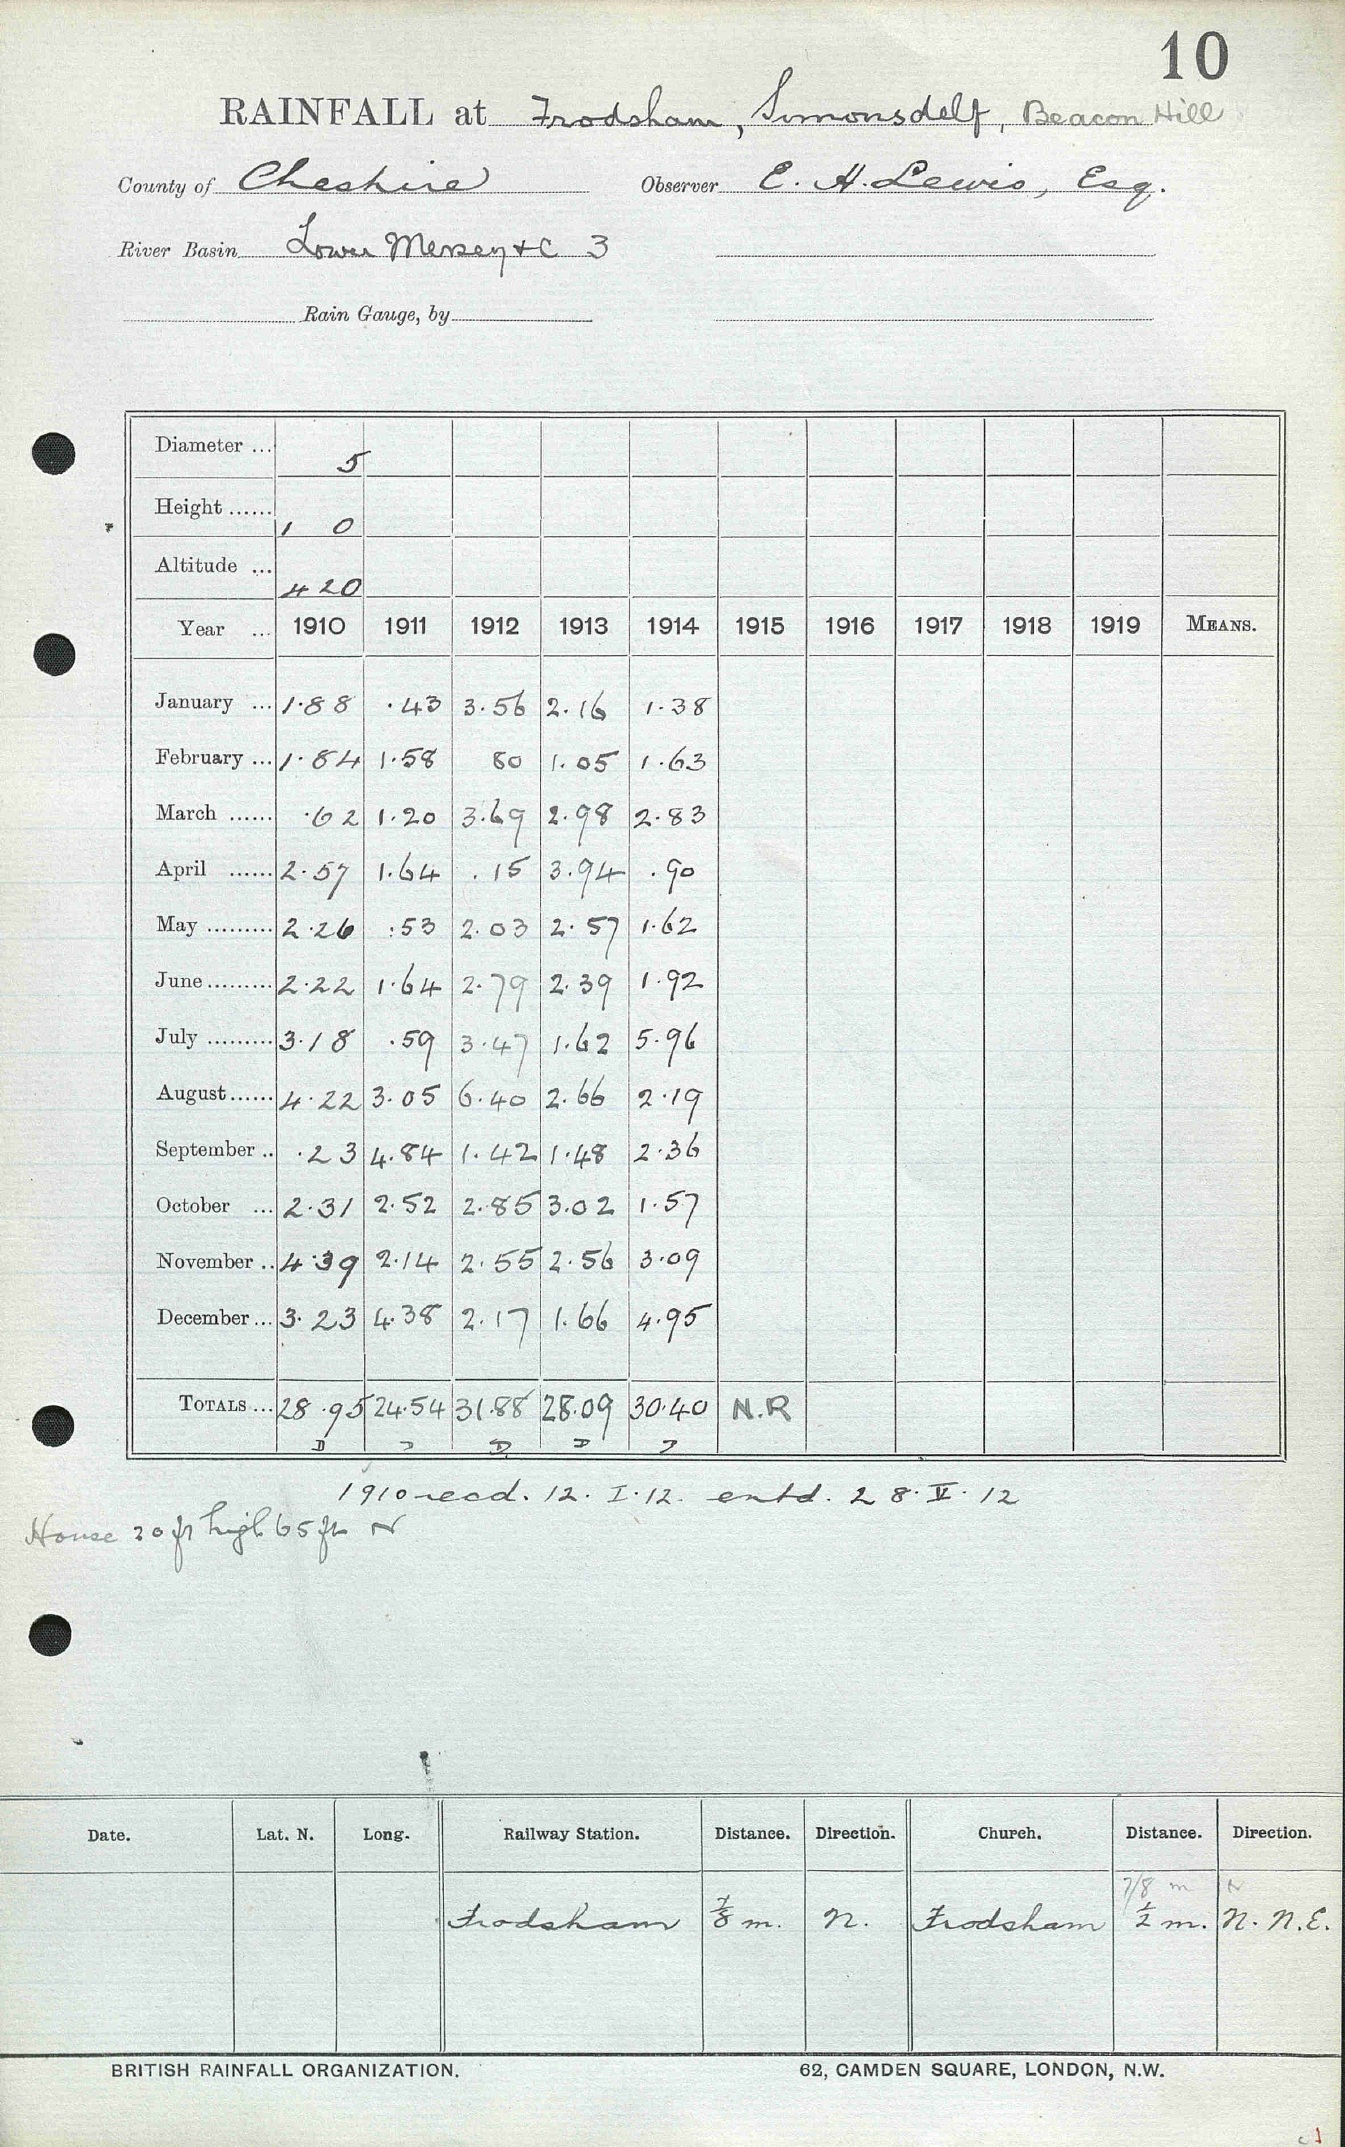 10
RAINFALL at Frodsham, Simonsdelf, Beacon Hill
County of Cheshire Observer E. H. Lewis, Esq.
River Basin Lower Mersey &c 3
Rain Gauge, by
Diameter ... 5
Height ...... 1 0
Altitude ... 420
Year ... 1910 1911 1912 1913 1914 1915 1916 1917 1918 1919 MEANS.
January ... 1.88 .43 3.56 2.16 1.38
February ... 1.84 1.58 80 1.05 1.63
March ...... .62 1.20 3.69 2.98 2.83
April ...... 2.57 1.64 .15 3.94 .90
May ......... 2.26 .53 2.03 2.57 1.62
June ......... 2.22 1.64 2.79 2.39 1.92
July ......... 3.18 .59 3.47 1.62 5.96
August ...... 4.22 3.05 6.40 2.66 2.19
September .. .23 4.84 1.42 1.48 2.36
October ... 2.31 2.52 2.85 3.02 1.57
November .. 4.39 2.14 2.55 2.56 3.09
December ... 3.23 4.38 2.17 1.66 4.95
TOTALS ... 28.95 24.54 31.88 28.09 30.40 N.R
D D D D D
1910 recd. 12. I. 12. entd. 28. V. 12
House 20 ft high 65 ft N
Date. Lat. N. Long. Railway Station. Distance. Direction. Church. Distance. Direction.
7/8 m N
Frodsham 7/8 m. N. Frodsham 1/2 m. N. N.E.
BRITISH RAINFALL ORGANIZATION. 62, CAMDEN SQUARE, LONDON, N.W.